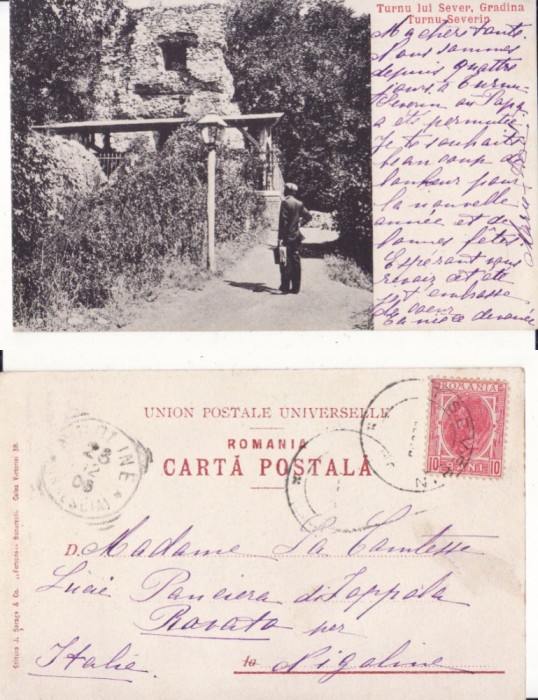 Turnu lui Sever, Gradina
Turnu-Severin
Ma chère tante.
Nous sommes
depuis quattre
jours à Turnu-
Severin ou Papa
a été permutée
Je te souhaite
beaucoup de
bonheur pour
la nouvelle
année et de
bonnes fêtes.
Espérant vous
revoir cet été
je t'embrasse
de coeur
ta nièce devouée
UNION POSTALE UNIVERSELLE
ROMANIA
CARTĂ POSTALĂ
ROMANIA
10 10
23
12
06
(BRESCIA)
D. Madame La Comtesse
Lucie Panciera di Zoppola
Rovato per
Italie. la Nigoline
Editura J. Saraga & Co. „Fortuna" Bucuresti Calea Victoriei